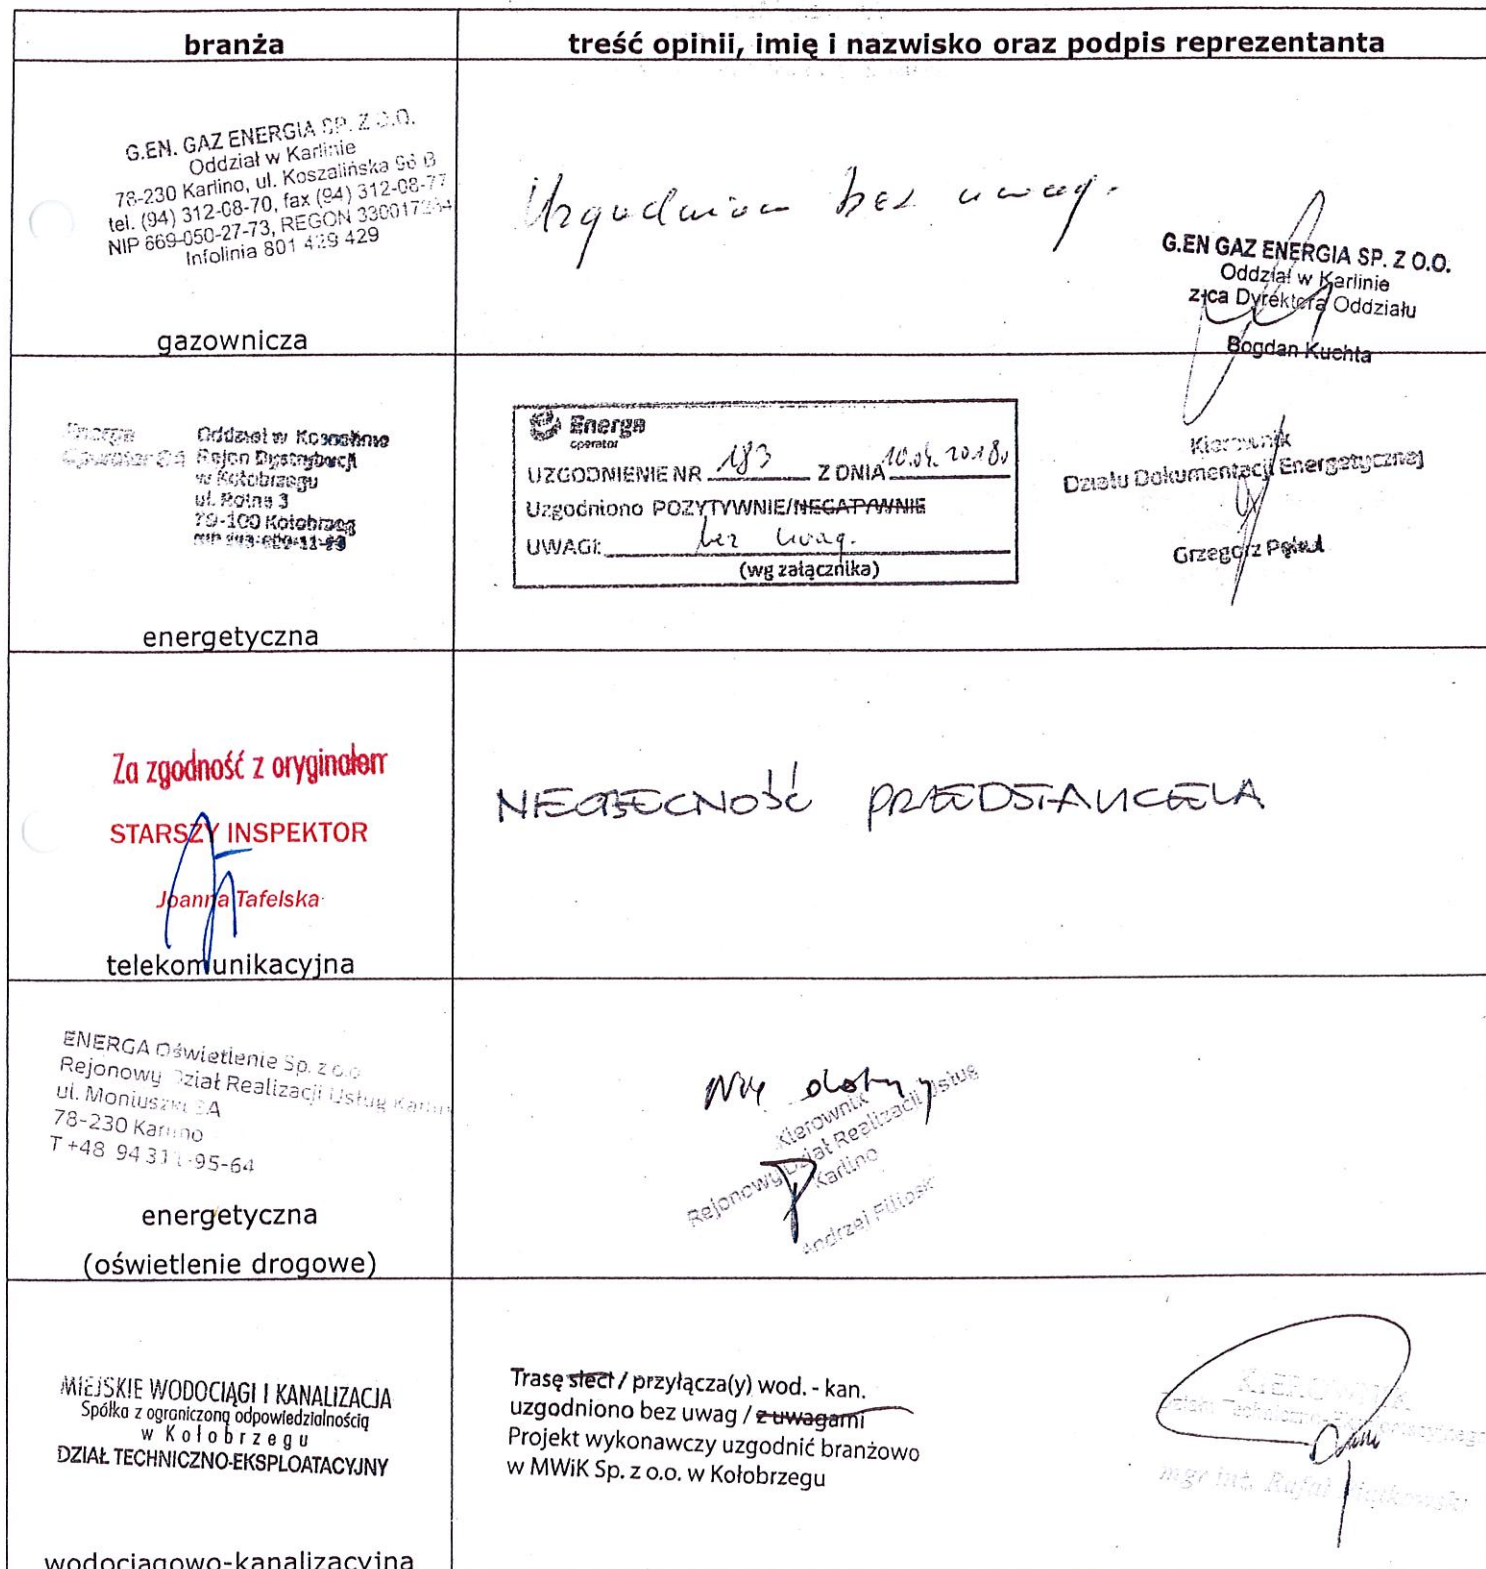 branża
treść opinii, imię i nazwisko oraz podpis reprezentanta
G.EN. GAZ ENERGIA SP. Z O.O.
Oddział w Karlinie
78-230 Karlino, ul. Koszalińska 96 B
tel. (94) 312-08-70, fax (94) 312-08-77
NIP 669-050-27-73, REGON 330017
Infolinia 801 429 429
gazownicza
Uzgodniono bez uwag.
G.EN GAZ ENERGIA SP. Z O.O.
Oddział w Karlinie
z-ca Dyrektora Oddziału
Bogdan Kuchta
Energa Oddział w Koszalinie
Operator SA Rejon Dystrybucji
w Kołobrzegu
ul. Rolna 3
78-100 Kołobrzeg
NIP
energetyczna
Energa
operator
UZGODNIENIE NR 183 Z DNIA 10.04.2018
Uzgodniono POZYTYWNIE/NEGATYWNIE
UWAGI: bez uwag.
(wg załącznika)
Kierownik
Działu Dokumentacji Energetycznej
Grzegorz
Za zgodność z oryginałem
STARSZY INSPEKTOR
Joanna Tafelska
telekomunikacyjna
NIEOBECNOŚĆ PRZEDSTAWICIELA
ENERGA Oświetlenie Sp. z o.o.
Rejonowy Dział Realizacji Usług Karlino
ul. Moniuszki
78-230 Karlino
T +48 94 311-95-64
energetyczna
(oświetlenie drogowe)
Nie dotyczy
Kierownik
Rejonowy Dział Realizacji Usług
Karlino
Andrzej
MIEJSKIE WODOCIĄGI I KANALIZACJA
Spółka z ograniczoną odpowiedzialnością
w Kołobrzegu
DZIAŁ TECHNICZNO-EKSPLOATACYJNY
wodociągowo-kanalizacyjna
Trasę sieci / przyłącza(y) wod. - kan.
uzgodniono bez uwag / z uwagami
Projekt wykonawczy uzgodnić branżowo
w MWiK Sp. z o.o. w Kołobrzegu
KIEROWNIK
Działu Techniczno-Eksploatacyjnego
mgr inż. Rafał